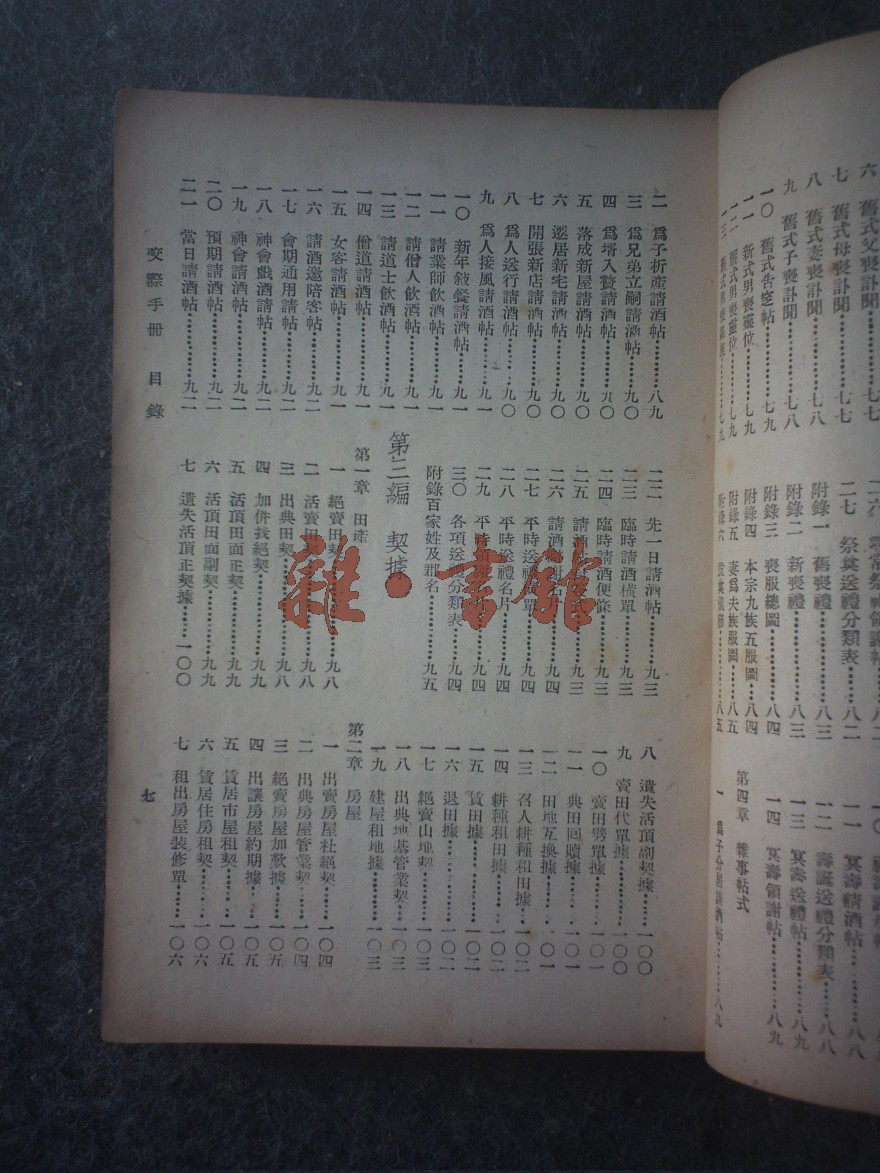 七 舊式母喪訃聞……七七
八 舊式妻喪訃聞……七八
九 舊式子喪訃聞……七八
一〇 舊式告窆帖……七九
一一 新式男喪靈位……七九
一二 舊式男喪靈位……七九
二七 祭奠送禮分類表……八二
附錄一 舊喪禮……八三
附錄二 新喪禮……八三
附錄三 喪服總圖……八四
附錄四 本宗九族五服圖……八四
附錄五 妻爲夫族服圖……八五
一一 冥壽請酒帖……八八
一二 壽誕送禮分類表……八八
一三 冥壽送禮帖……八九
一四 冥壽領謝帖……八九
第四章 雜事帖式
二 爲子析產請酒帖……八九
三 爲兄弟立嗣請酒帖……九〇
四 爲壻入贅請酒帖……九〇
五 落成新屋請酒帖……九〇
六 遷居新宅請酒帖……九〇
七 開張新店請酒帖……九〇
八 爲人送行請酒帖……九〇
九 爲人接風請酒帖……九一
一〇 新年敍餐請酒帖……九一
一一 請業師飲酒帖……九一
一二 請僧人飲酒帖……九一
一三 請道士飲酒帖……九一
一四 僧道請酒帖……九一
一五 女客請酒帖……九一
一六 請酒邀陪客帖……九二
一七 會期通用請帖……九二
一八 神會戲酒請帖……九二
一九 神會請酒帖……九二
二〇 預期請酒帖……九二
二一 當日請酒帖……九二
二二 先一日請酒帖……九三
二三 臨時請酒橫單……九三
二四 臨時請酒便條……九三
二五 請酒……九三
二六 請酒……九四
二七 平時送禮單……九四
二八 平時送禮名片……九四
二九 平時領謝……九四
三〇 各項送禮分類表……九四
附錄百家姓及郡名……九五
第三編 契據
第一章 田產
一 絕賣田契……九八
二 活賣田……九八
三 出典田契……九八
四 加併找絕契……九九
五 活頂田面正契……九九
六 活頂田面副契……九九
七 遺失活頂正契據……一〇〇
八 遺失活頂副契據……一〇〇
九 賣田代單據……一〇〇
一〇 賣田劈單據……一〇一
一一 典田回贖據……一〇一
一二 田地互換據……一〇一
一三 召人耕種租田據……一〇二
一四 耕種租田據……一〇二
一五 賃田據……一〇二
一六 退田據……一〇二
一七 絕賣山地契……一〇二
一八 出典地基管業契……一〇三
一九 建屋租地據……一〇三
第二章 房屋
一 出賣房屋杜絕契……一〇四
二 出典房屋管業契……一〇四
三 絕賣房屋加歎據……一〇五
四 出讓房屋約期據……一〇五
五 賃居市屋租契……一〇五
六 賃居住房租契……一〇六
七 租出房屋裝修單……一〇六
交際手册 目錄
七
雜·書館